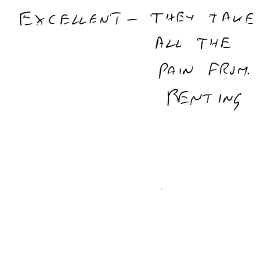 EXCELLENT - THEY TAKE
ALL THE
PAIN FROM.
RENTING